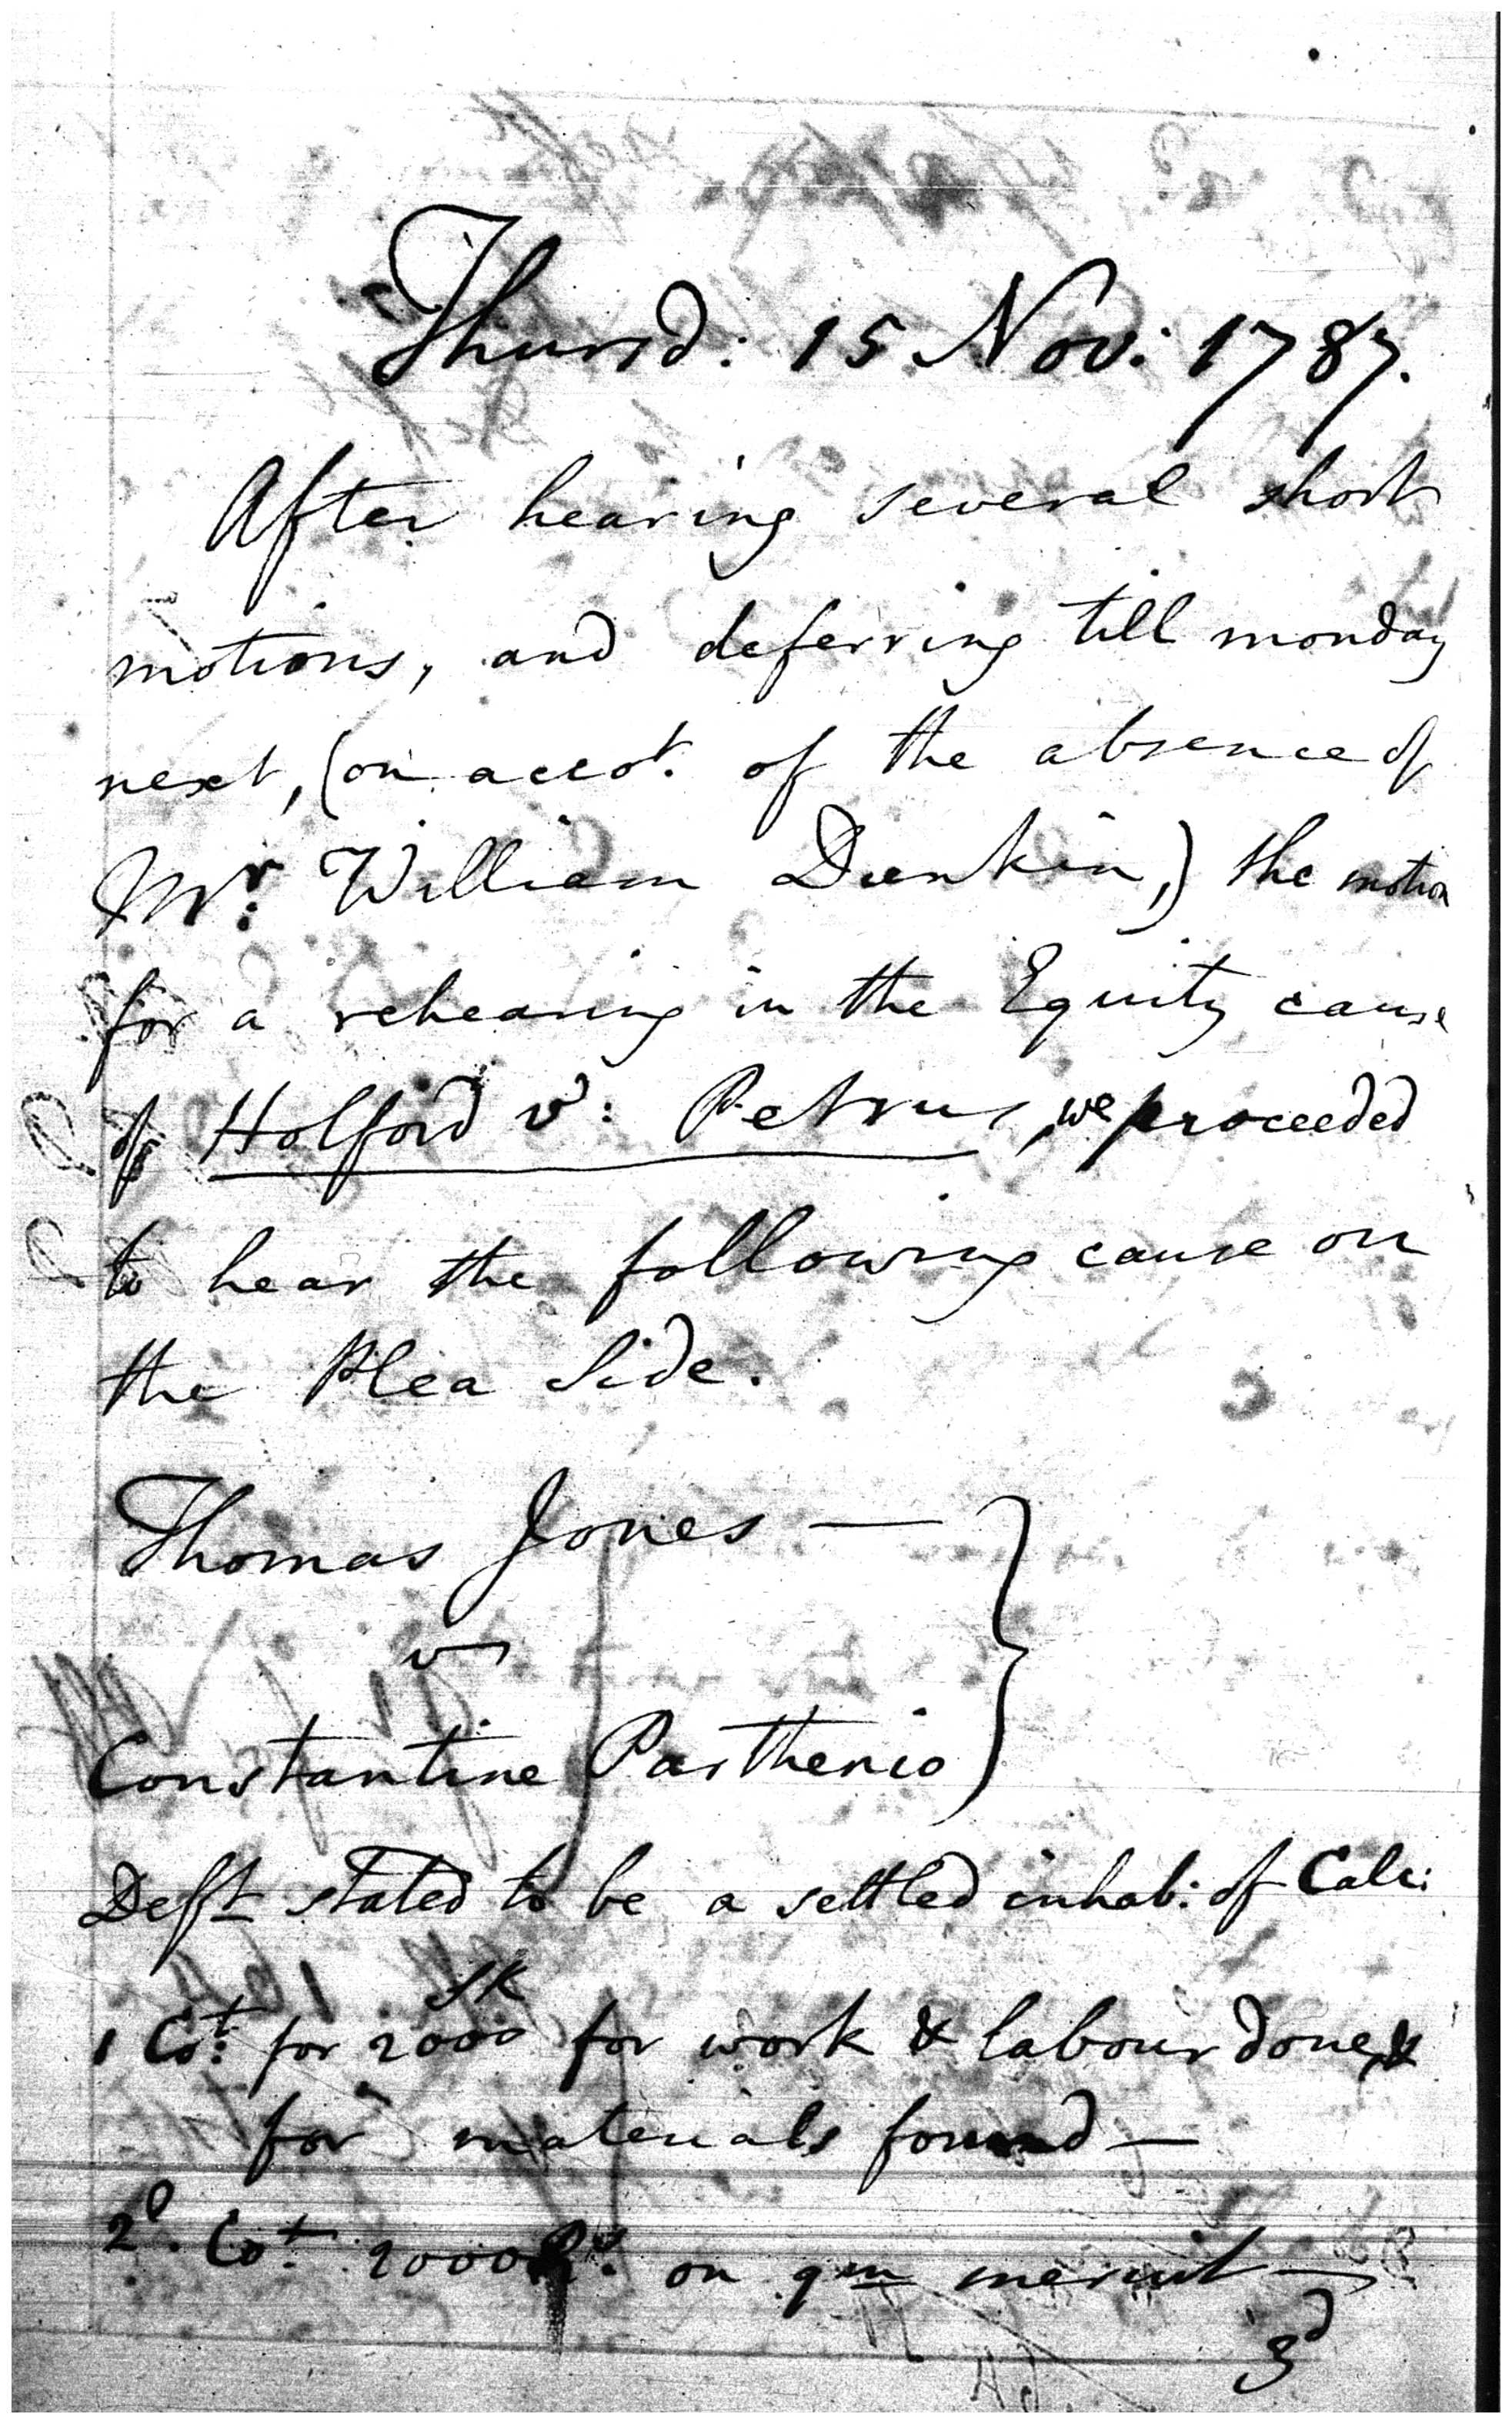 Thursd: 15 Nov: 1787.
After hearing several short
motions, and deferring till monday
next, (on accot. of the absence of
Mr: William Dunkin,) the motion
for a rehearing in the Equity cause
of Holford v: Petrus, we proceeded
to hear the following cause on
the Plea Side.
Thomas Jones —
v
Constantine Parthenio
Deft stated to be a settled inhab: of Calc:
SR
1 Cot: for 2000 for work & labour done, &
for materials found —
2d. Cot 2000 Rs. on qm meruit —
3d